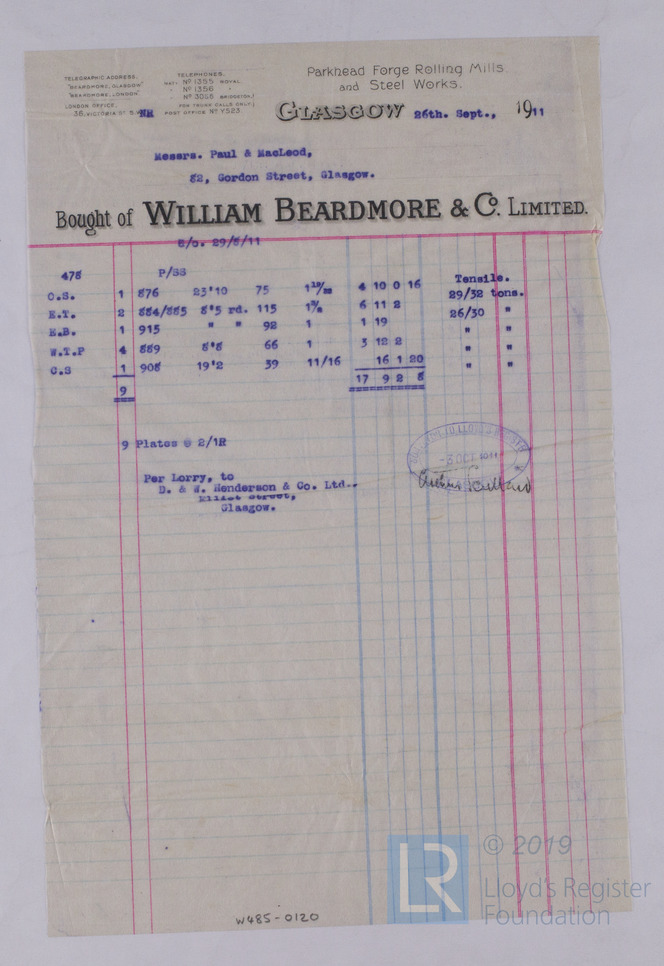 Parkhead Forge Rolling Mills
and Steel Works.
TELEGRAPHIC ADDRESS.
"BEARDMORE, GLASGOW"
"BEARDMORE, LONDON"
LONDON OFFICE.
36, VICTORIA ST S.W.
NR
TELEPHONES.
NAT. No 1355 ROYAL
" No 1356 "
" No 3055 BRIDGETON
FOR TRUNK CALLS ONLY
POST OFFICE No Y523
GLASGOW 26th. Sept., 1911
Messrs. Paul & MacLeod,
82, Gordon Street, Glasgow.
Bought of WILLIAM BEARDMORE & Co. LIMITED.
S/o. 29/8/11
478 P/SS Tensile.
C.S. 1 876 23'10 75 4 10 0 16 29/32 tons.
E.T. 2 884/885 8'5 rd. 115 6 11 2 26/30 "
E.B. 1 915 " " 92 1 1 19 " "
W.T.P 4 889 8'8 66 1 3 12 2 " "
C.S 1 908 19'2 39 11/16 16 1 20 " "
9 17 9 2 8
9 Plates @ 2/1R
Per Lorry, to
D. & W. Henderson & Co. Ltd.,
Elliot Street,
Glasgow.
LLOYD'S REGISTER
-3 OCT 1911
W485-0120
LR
© 2019
Lloyd's Register
Foundation